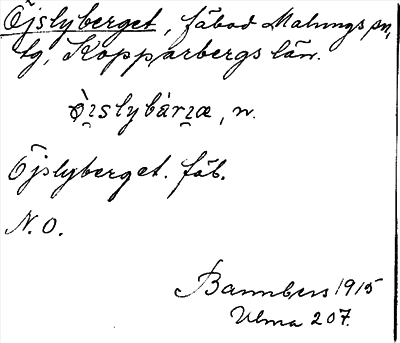 Öjslyberget, fäbod Malungs sn,
tg, Kopparbergs län.
öi̯slybàri̯æ, n.
Öjslyberget. fäb.
N. O.
Bannbers 1915
Ulma 207.